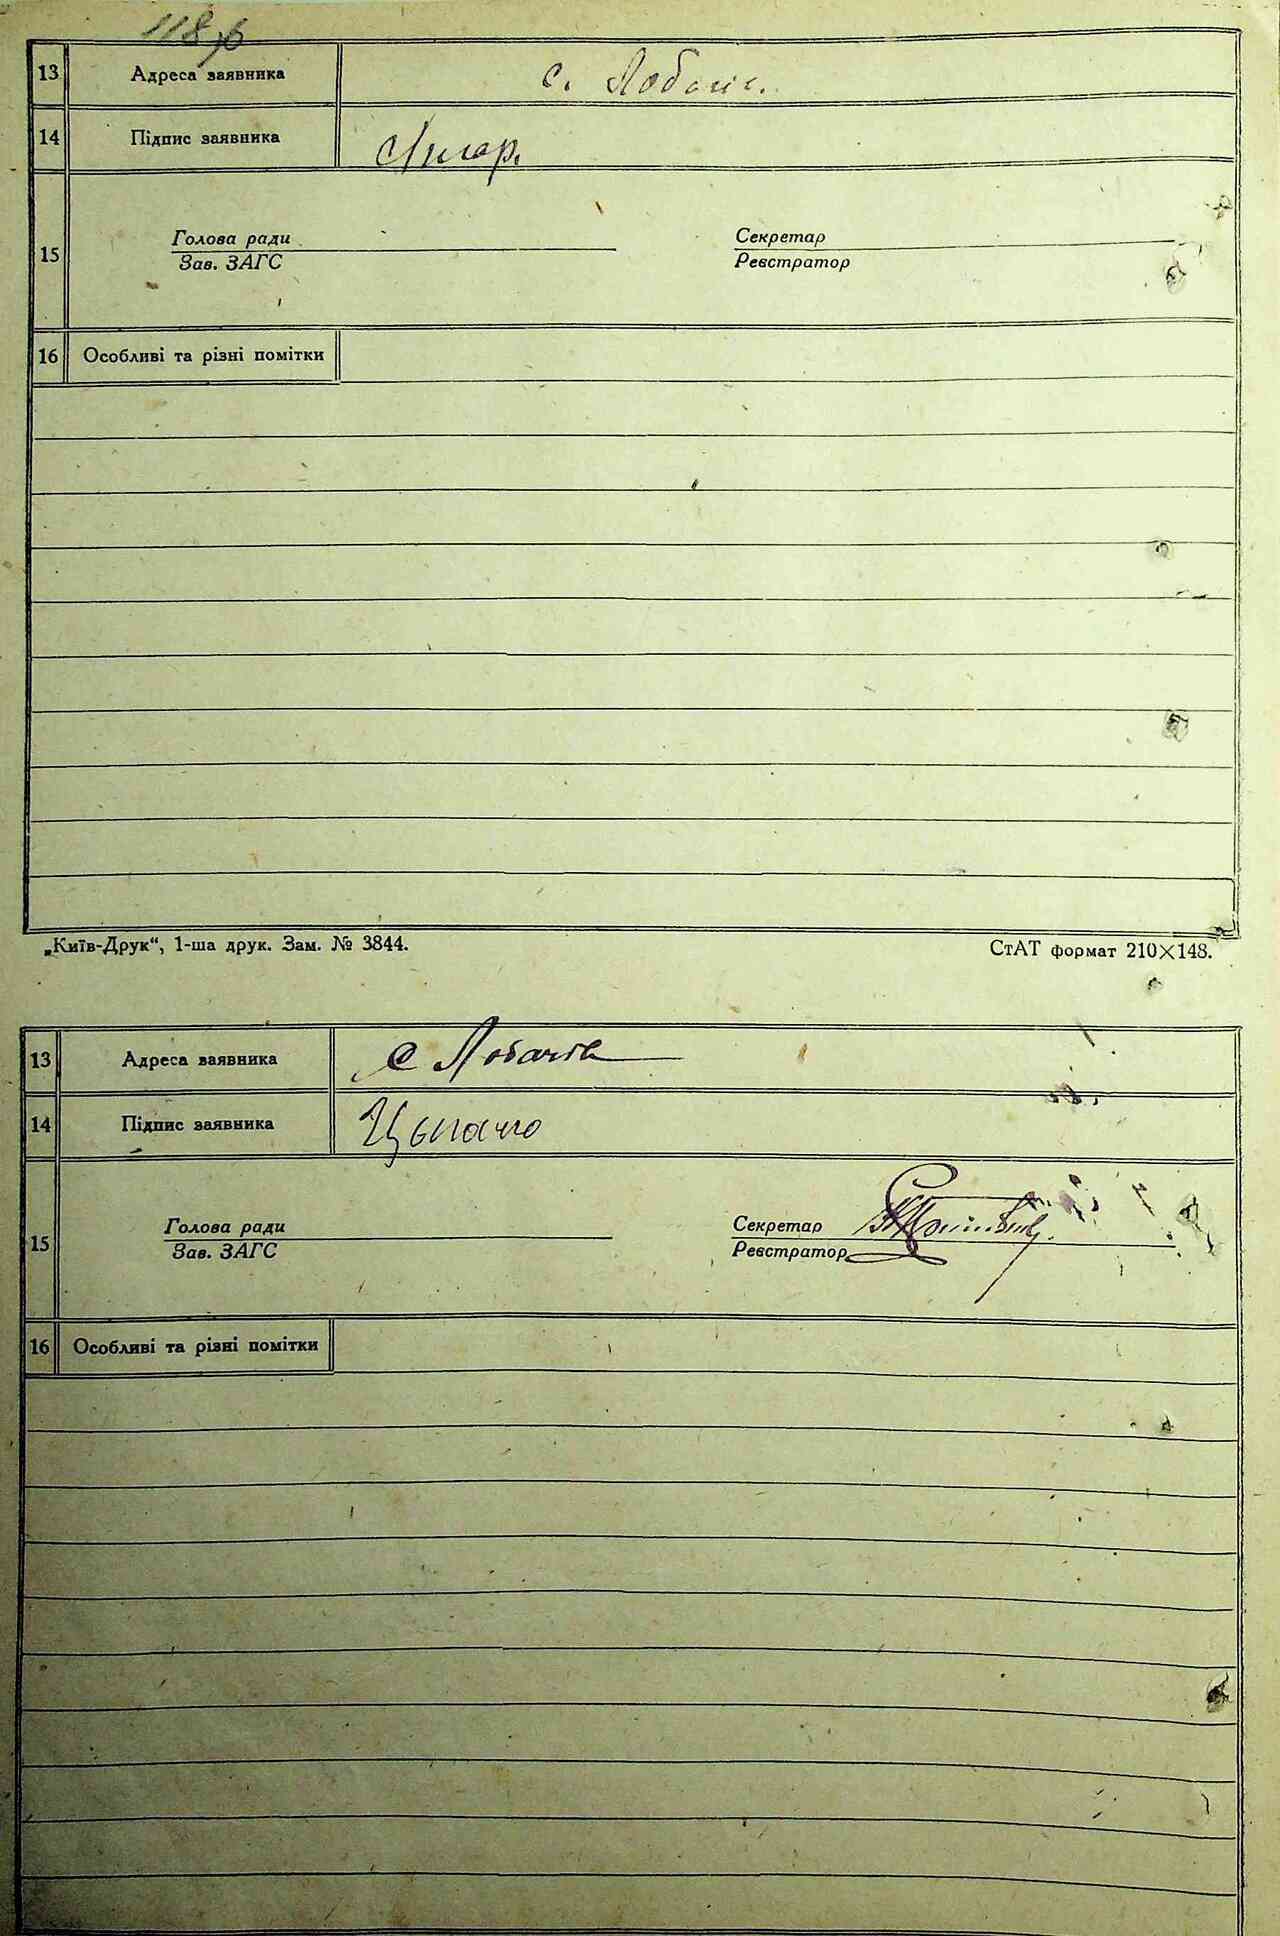 118
13 Адреса заявника с.
14 Підпис заявника
Голова ради Секретар
15
Зав. ЗАГС Реєстратор
16 Особливі та різні помітки
„Київ-Друк“, 1-ша друк. Зам. № 3844. СтАТ формат 210×148.
13 Адреса заявника с Лобачів
14 Підпис заявника
Голова ради Секретар
15
Зав. ЗАГС Реєстратор
16 Особливі та різні помітки